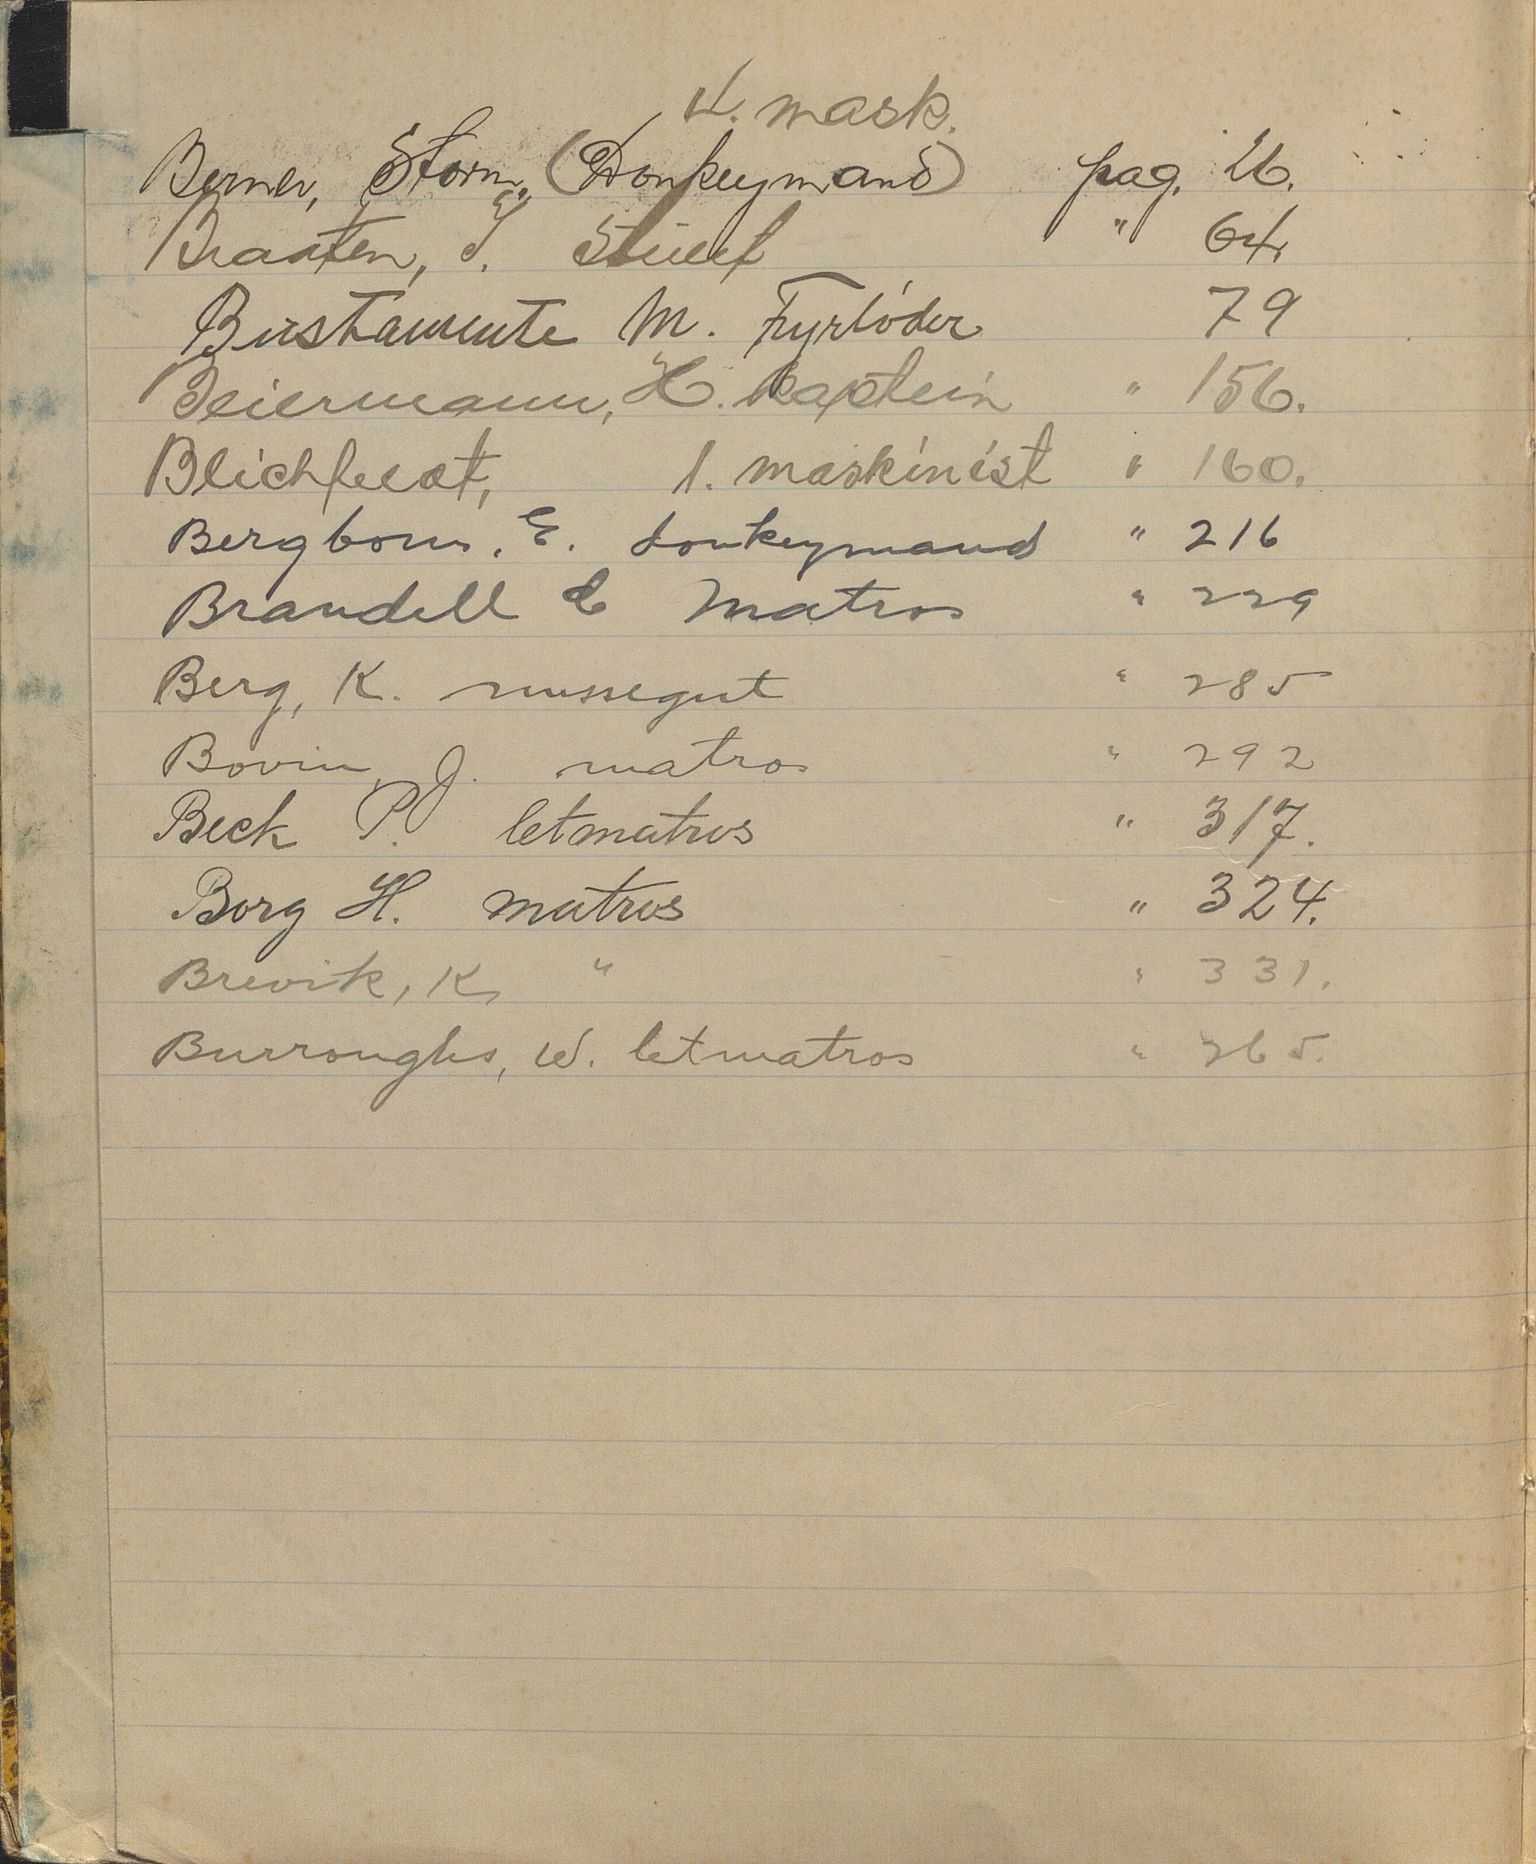 4. mask.
Berner, Storm, (Donkeymand) pag. 26.
Braaten, T. Stuert " 64.
Bustamente M. Fyrböder 79
Beiermann, H. Kaptein " 156.
Blichfeldt, 1. maskinist " 160.
Bergbom, E. donkeymand " 216
Brandell E matros " 229
Berg, K. messegut " 285
Bovin, J. matros " 292
Beck P. letmatros " 317.
Borg H. matros " 324.
Brevik, K. " " 331.
Burroughs, W. letmatros " 365.